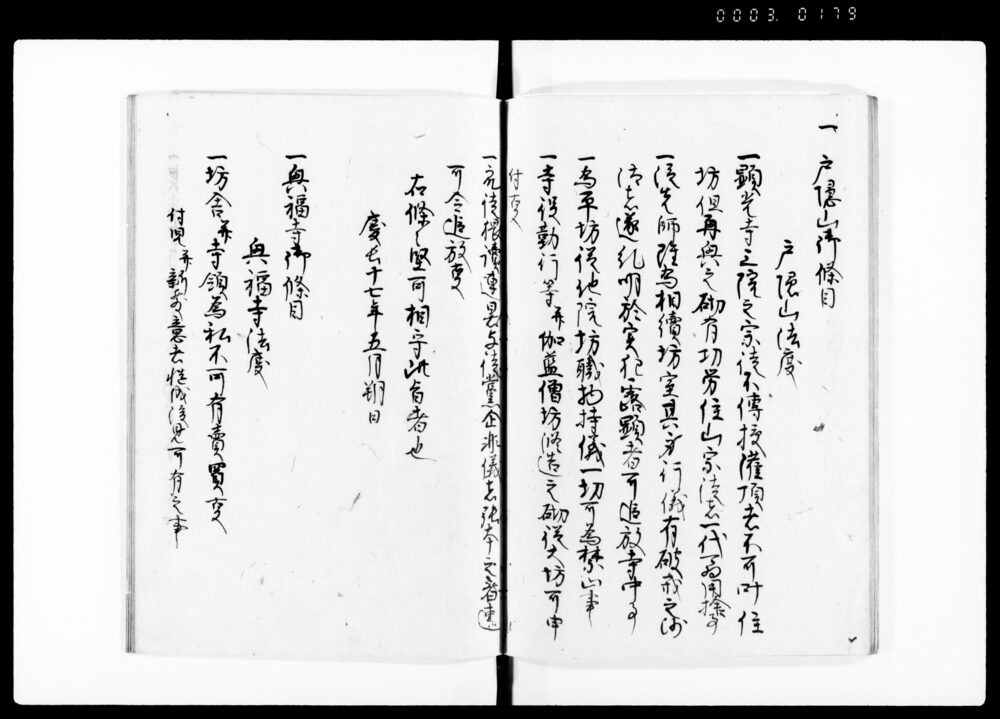 0003. 0179
一 戸隠山御條目
戸隠山法度
一顕光寺三院之宗徒不傳授灌頂者不可叶住
坊但再興之砌有切労住山宗徒者一代可用捨事
一従先師雖為相續坊室其身行儀有破戒之沙
汰者遂糺明於実犯露顕者可追放寺中事
一為平坊従他院坊職拘持儀一切可為禁止事
一寺役勤行等并伽藍僧坊修造之砌従大坊可申
付事
一衆徒猥讒連署与徒黨企非儀者張本之者速
可令追放事
右條々堅可相守此旨者也
慶長十七年五月朔日
一興福寺御條目
興福寺法度
一坊舎并寺領為私不可有賣買事
付児并新発意者悽成後見可有之事